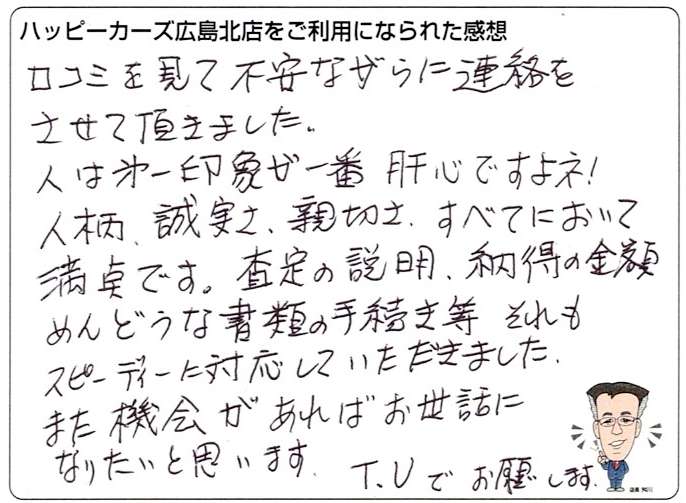 ハッピーカーズ広島北店をご利用になられた感想
口コミを見て不安ながらに連絡を
させて頂きました。
人は第一印象が一番 肝心ですよネ!
人柄、誠実さ、親切さ、すべてにおいて
満点です。査定の説明、納得の金額
めんどうな書類の手続き等 それも
スピーディーに対応していただきました。
また機会があればお世話に
なりたいと思います。 T.Uでお願いします。